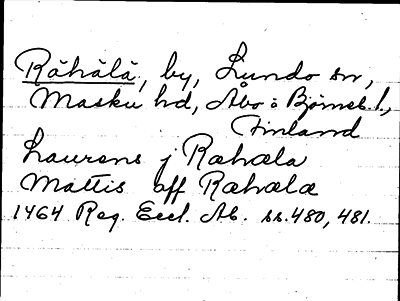 Rähälä, by, Lundo sn,
Masku hd, Åbo o Björneb. l.,
Finland
Laurens j Rahala
Mattis aff Rahala
1464 Reg. Eccl. Ab. ss. 480, 481.